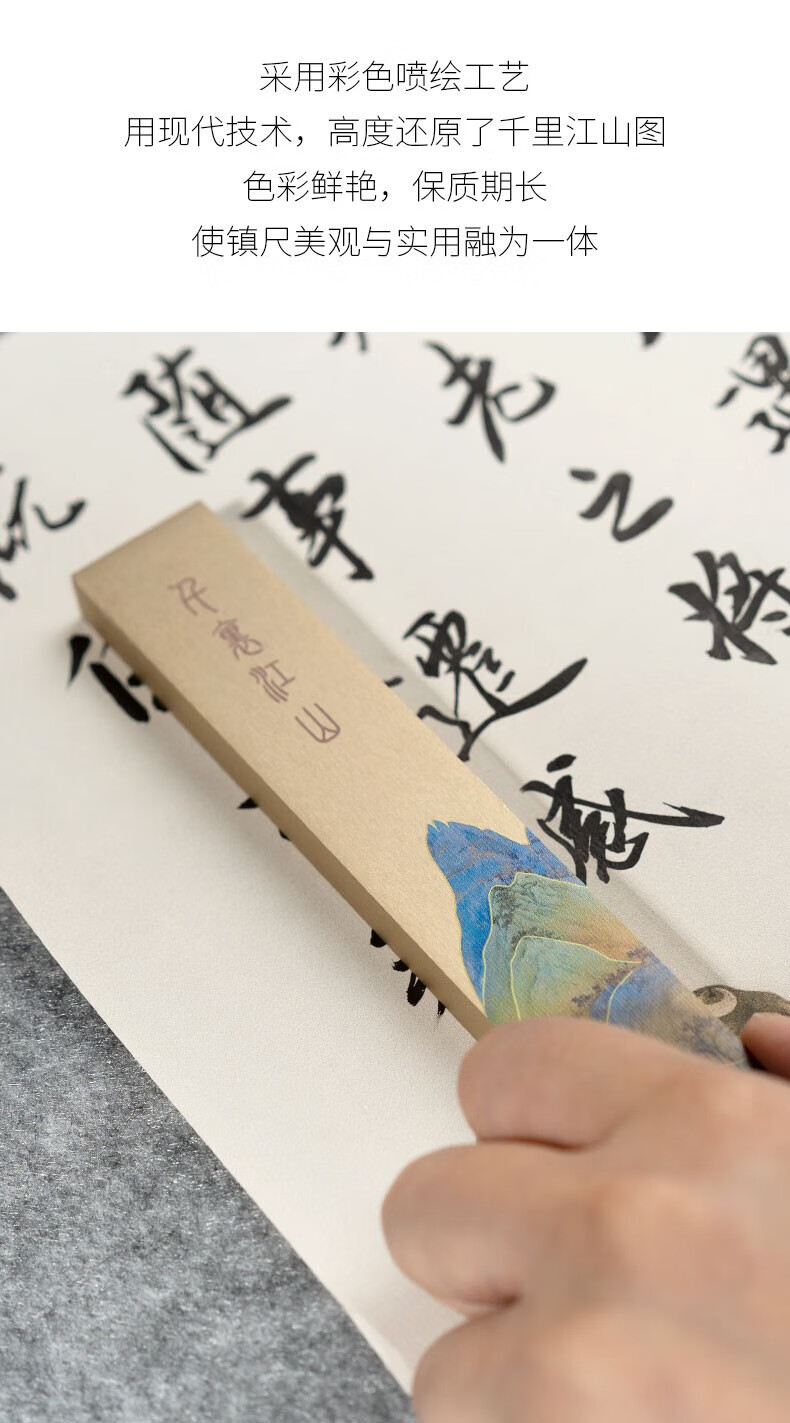 采用彩色喷绘工艺
用现代技术，高度还原了千里江山图
色彩鲜艳，保质期长
使镇尺美观与实用融为一体
老之将
随事遷感
江山